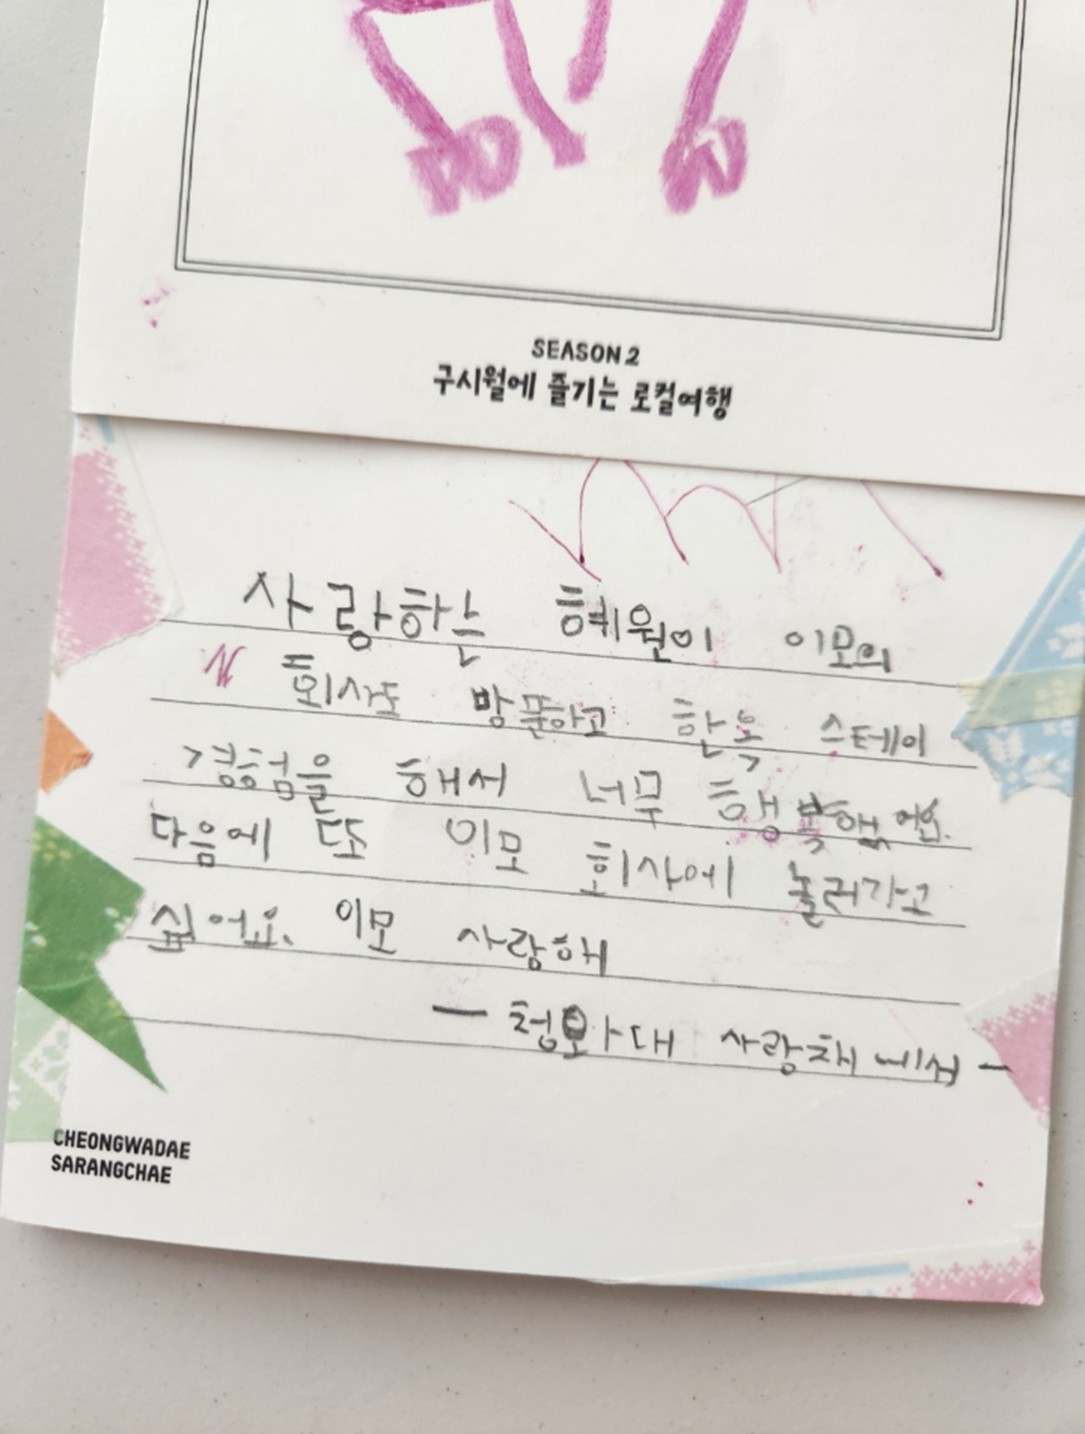 SEASON 2
구시월에 즐기는 로컬여행
사랑하는 혜원이 이모의
회사도 방문하고 한옥 스테이
경험을 해서 너무 행복했어요.
다음에 또 이모 회사에 놀러가고
싶어요. 이모 사랑해
- 청와대 사랑채에서 -
CHEONGWADAE
SARANGCHAE